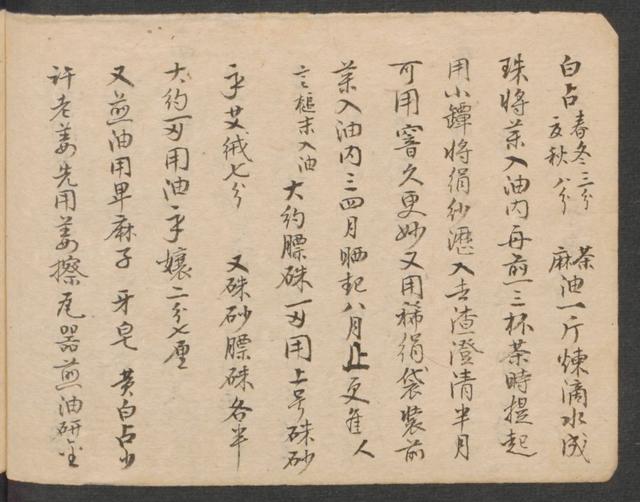 白占 春冬三分 夏秋八分 茶麻油一斤煉滴水成
珠將菜入油內再煎三杯茶時提起
用小罈將絹紗瀝入去渣澄清半月
可用窨久更妙又用稀絹袋裝前
菜入油內三四月晒起八月止更隹人
言槌末入油 大約膘硃一刄用上号硃砂
乎艾絨七分 又硃砂膘硃各半
大約一刄用油乎孃二分七厘
又煎油用卑麻子 牙皂 黄白占少
許老姜先用姜擦瓦器煎油研